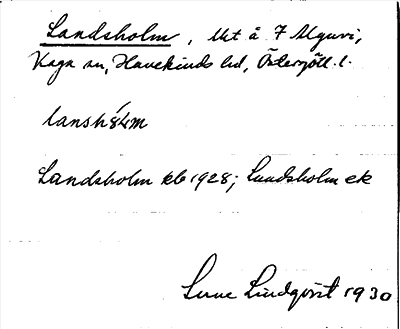 Landsholm, lht å 7 Älguvi,
Kaga sn, Hanekinds hd, Östergötl. l.
lanshåḷm
Landsholm kb 1928; Lundsholm ek
Sune Lindqvist 1930